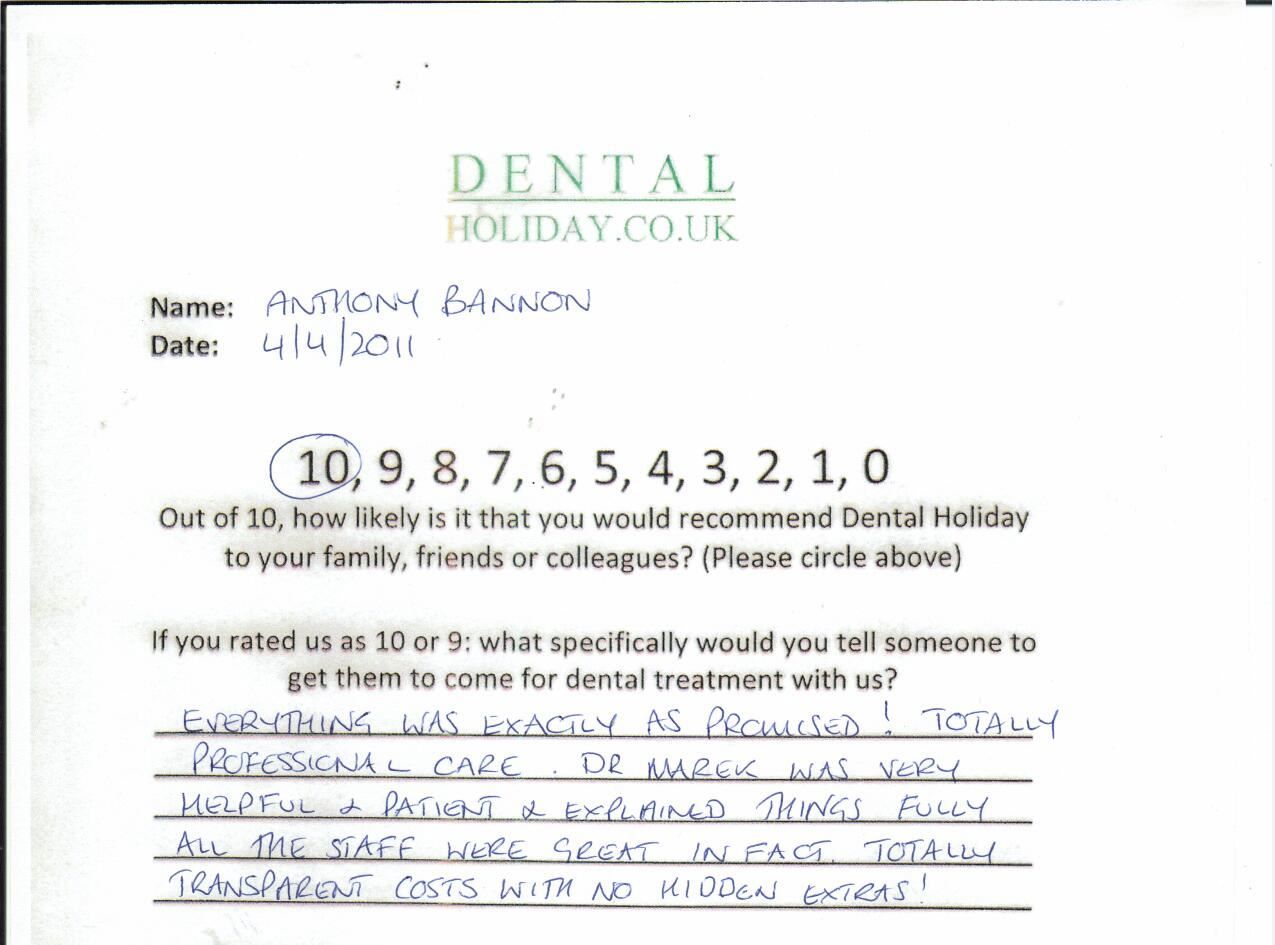 DENTAL
HOLIDAY.CO.UK
Name: ANTHONY BANNON
Date: 4/4/2011
10, 9, 8, 7, 6, 5, 4, 3, 2, 1, 0
Out of 10, how likely is it that you would recommend Dental Holiday
to your family, friends or colleagues? (Please circle above)
If you rated us as 10 or 9: what specifically would you tell someone to
get them to come for dental treatment with us?
EVERYTHING WAS EXACTLY AS PROMISED! TOTALLY
PROFESSIONAL CARE. DR MAREK WAS VERY
HELPFUL & PATIENT & EXPLAINED THINGS FULLY
ALL THE STAFF WERE GREAT IN FACT. TOTALLY
TRANSPARENT COSTS WITH NO HIDDEN EXTRAS!